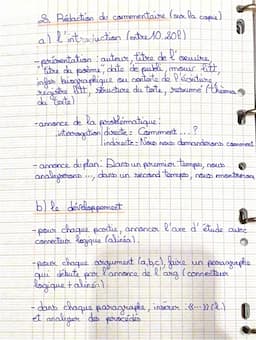 2. Rédaction du commentaire (sur la copie)
a) l'introduction (entre 10, 20l)
- présentation: auteur, titre de l'oeuvre,
"titre du poème", date de publi, mouv litt,
infos biographique ou contexte de l'écriture,
registre litt, structure du texte, résumé (thème
du texte)
- annonce de la problématique:
interrogation directe: Comment ...?
indirecte: Nous nous demanderons comment
- annonce du plan: Dans un premier temps, nous
analyserons ..., dans un second temps, nous montrerons
b) le développement
- pour chaque partie, annoncer l'axe d'étude avec
connecteur logique (alinéa).
- pour chaque argument (a,b,c), faire un paragraphe
qui débute par l'annonce de l'arg (connecteur
logique + alinéa).
- dans chaque paragraphe, insérer «...» (l.)
et analyser des procédés